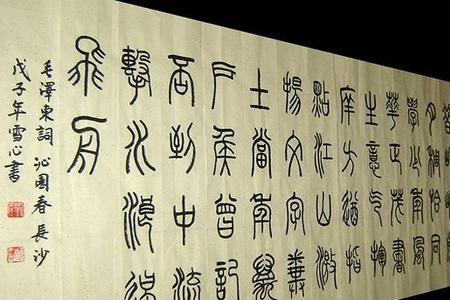 月稠恰同
學少年風
華正茂書
生意氣揮
斥方遒指
點江山激
揚文字糞
土當年萬
戶侯曾記
否到中流
擊水浪遏
飛舟
毛澤東詞 沁園春 長沙
戊子年雪心書